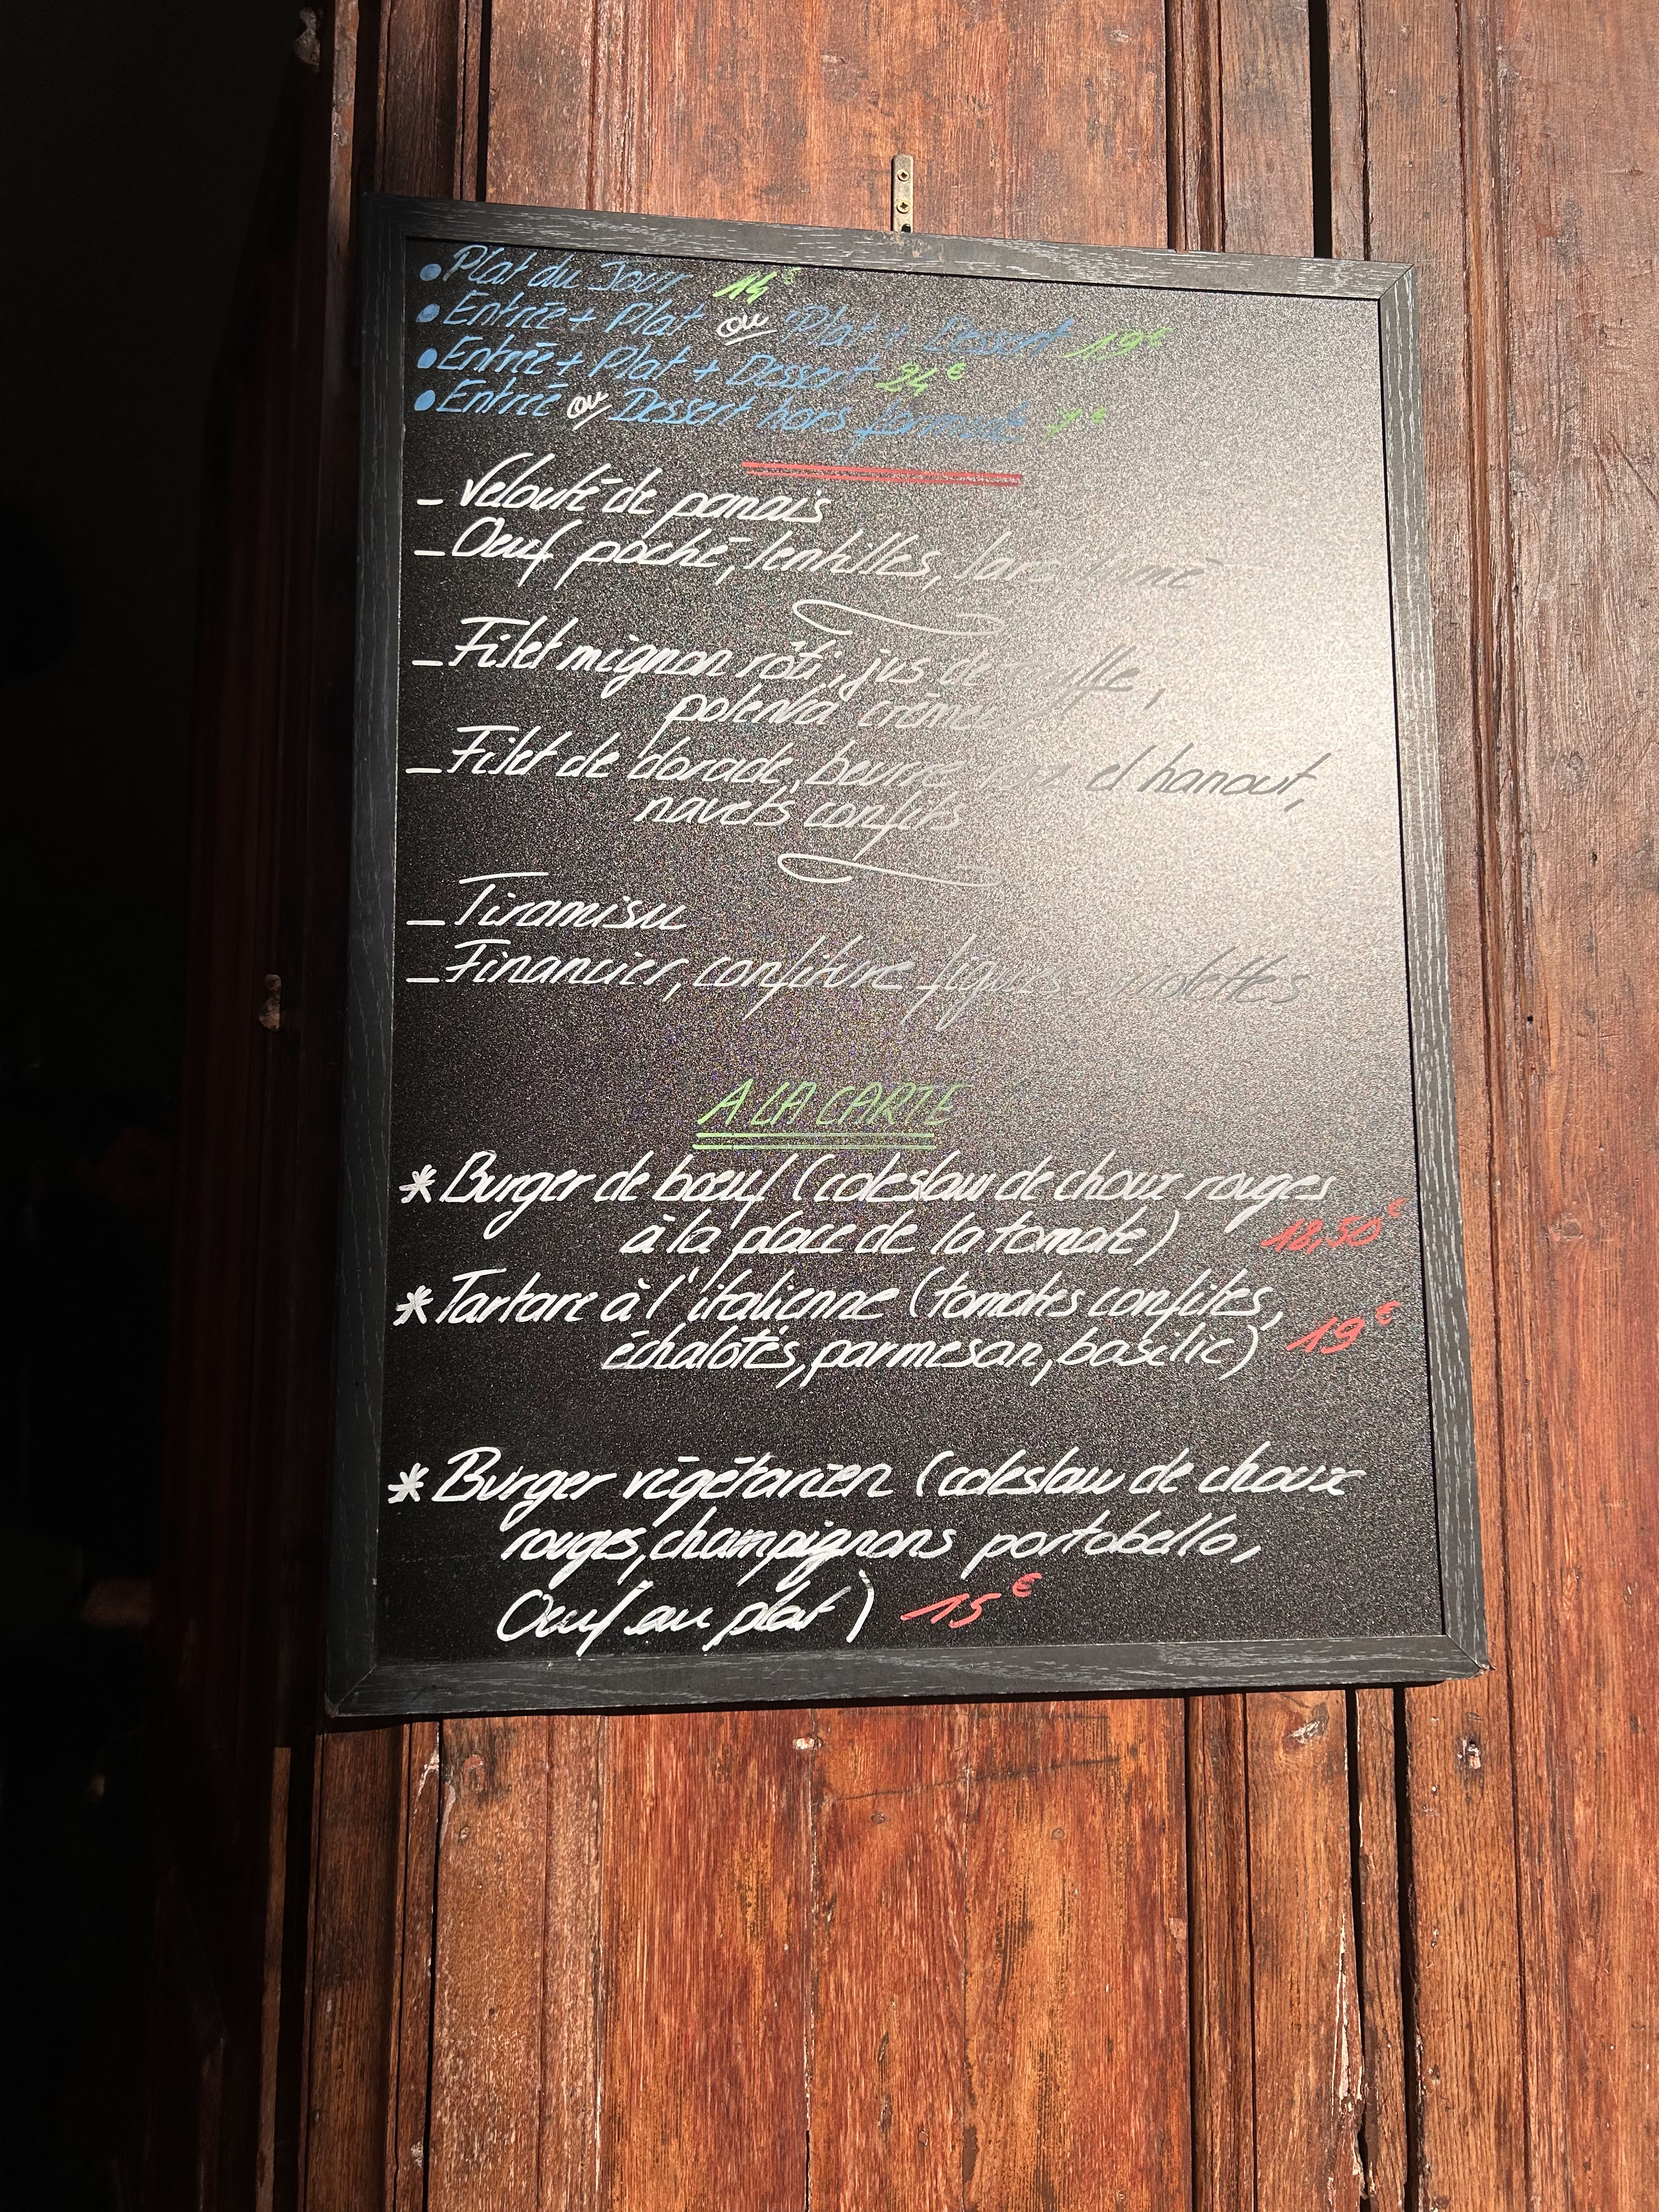 • Plat du Jour 14€
• Entrée + Plat ou Plat + Dessert 19€
• Entrée + Plat + Dessert 24€
• Entrée ou Dessert hors formule 7€
- Velouté de panais
- Oeuf poché, lentilles, lard fumé
- Filet mignon rôti, jus de truffe,
polenta crémeuse
- Filet de dorade, beurre ras el hanout,
navets confits
- Tiramisu
- Financier, confiture figues violettes
A LA CARTE
* Burger de bœuf (coleslaw de choux rouges
à la place de la tomate) 18,50€
* Tartare à l'italienne (tomates confites,
échalotes, parmesan, basilic) 19€
* Burger végétarien (coleslaw de choux
rouges, champignons portobello,
Oeuf au plat) 15€